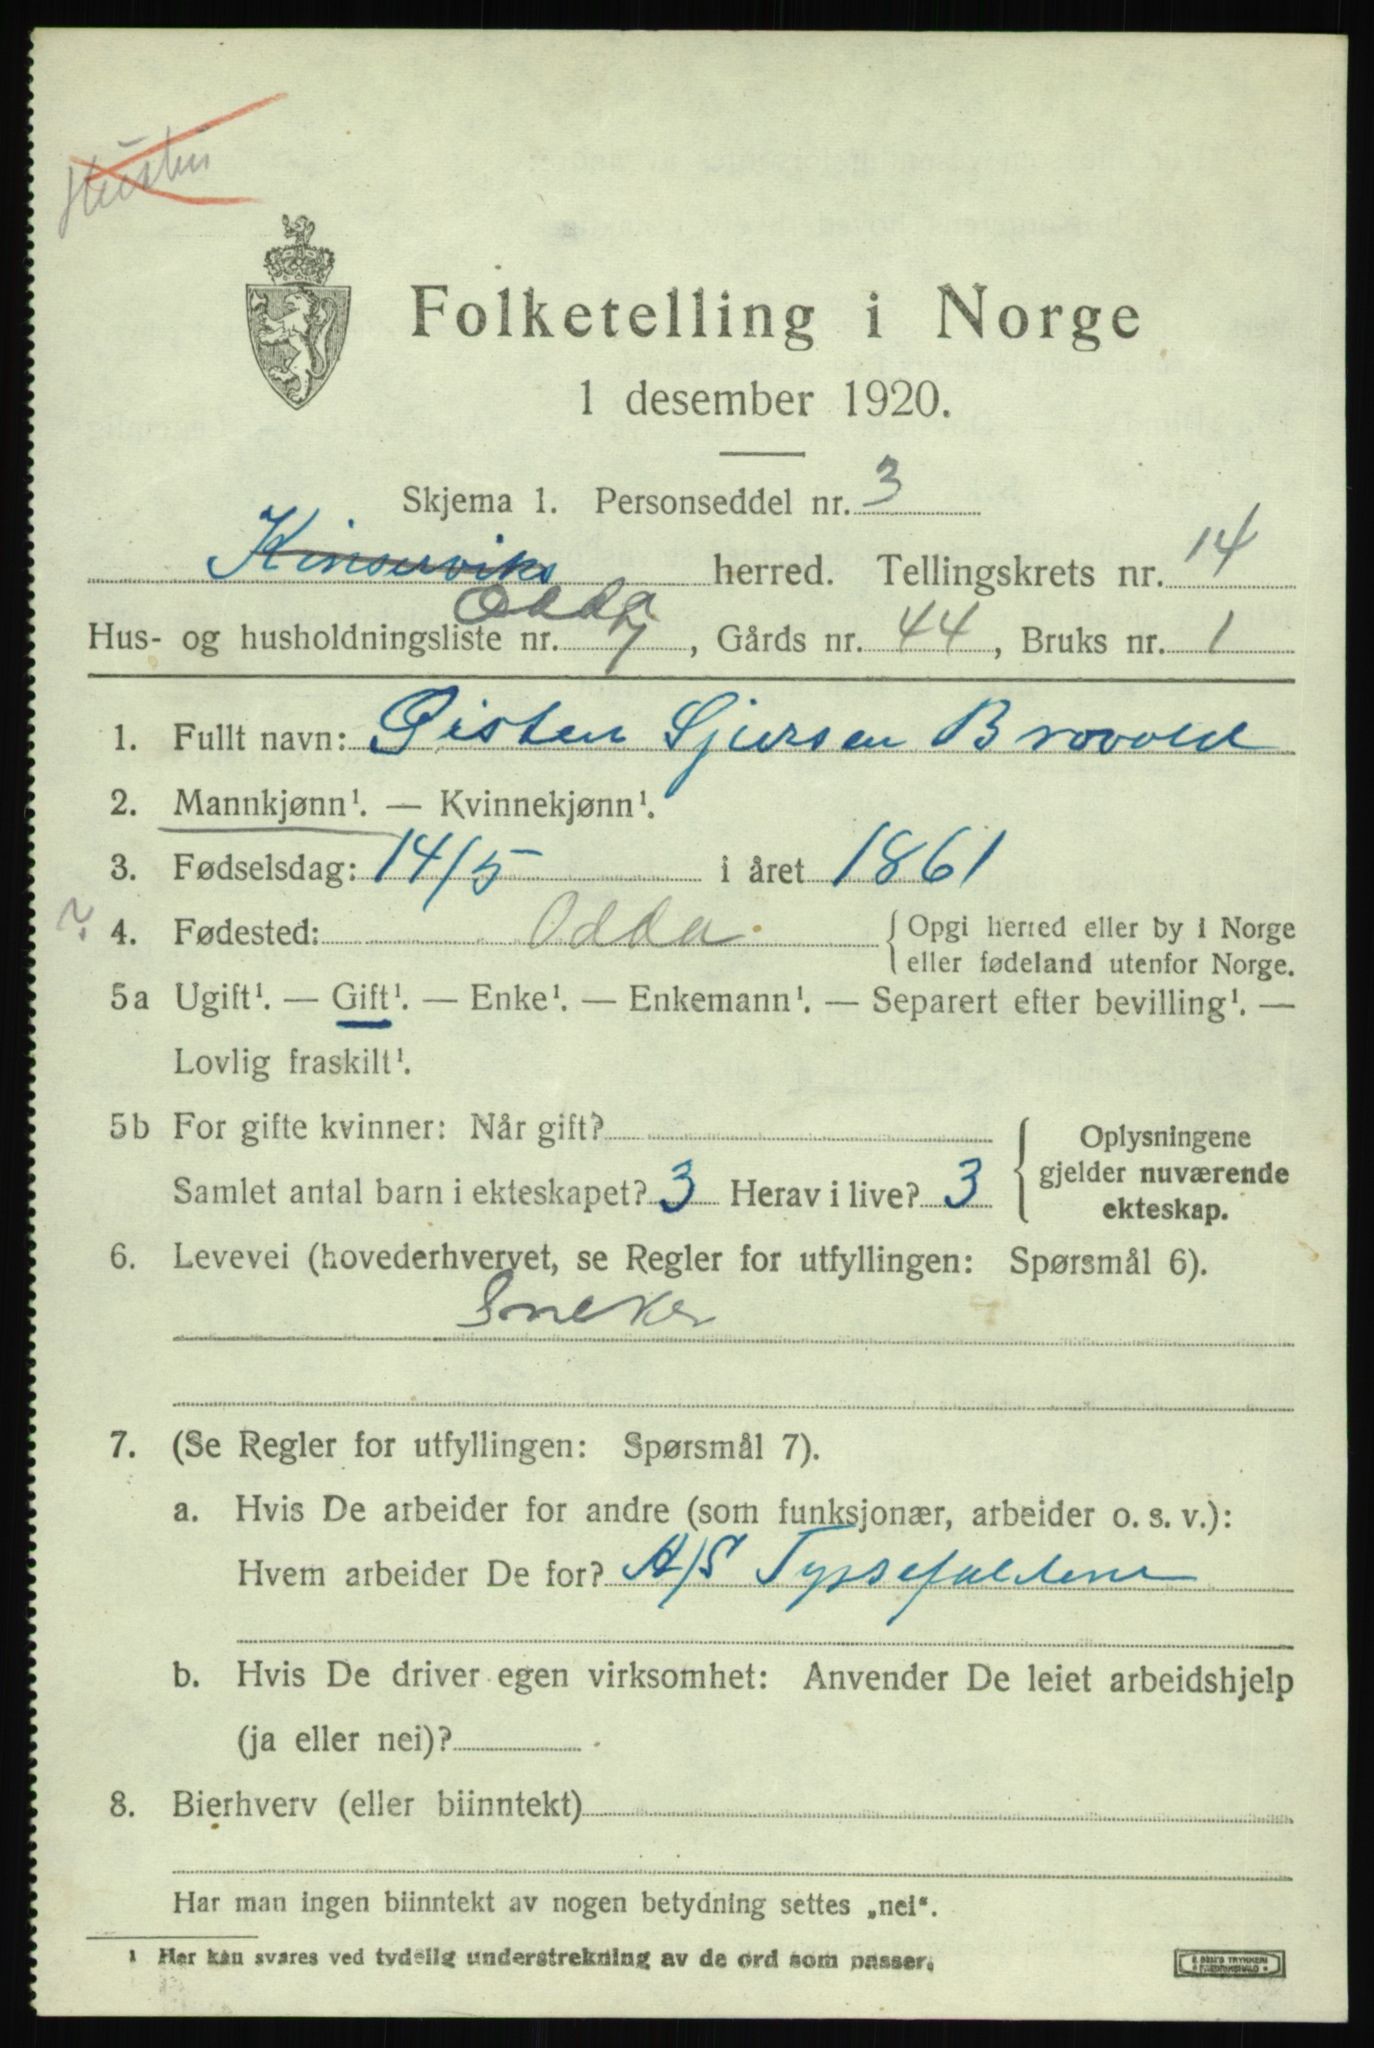 Husten
Folketelling i Norge
1 desember 1920.
Skjema 1. Personseddel nr. 3
Kinserviks herred. Tellingskrets nr. 14
Odda
Hus- og husholdningsliste nr. 7, Gårds nr. 44, Bruks nr. 1
1. Fullt navn: Øisten Sjursen Brovold
2. Mannkjønn¹. — Kvinnekjønn¹.
3. Fødselsdag: 14/5 i året 1861
? 4. Fødested: Odda { Opgi herred eller by i Norge
eller fødeland utenfor Norge.
5a Ugift¹. — Gift¹. — Enke¹. — Enkemann¹. — Separert efter bevilling¹. —
Lovlig fraskilt¹.
5b For gifte kvinner: Når gift?
Samlet antal barn i ekteskapet? 3 Herav i live? 3
{ Oplysningene
gjelder nuværende
ekteskap.
6. Levevei (hovederhvervet, se Regler for utfyllingen: Spørsmål 6).
Sneker
7. (Se Regler for utfyllingen: Spørsmål 7).
a. Hvis De arbeider for andre (som funksjonær, arbeider o. s. v.):
Hvem arbeider De for? A/S Tyssefaldene
b. Hvis De driver egen virksomhet: Anvender De leiet arbeidshjelp
(ja eller nei)?
8. Bierhverv (eller biinntekt)
Har man ingen biinntekt av nogen betydning settes „nei“.
¹ Her kan svares ved tydelig understrekning av de ord som passer.